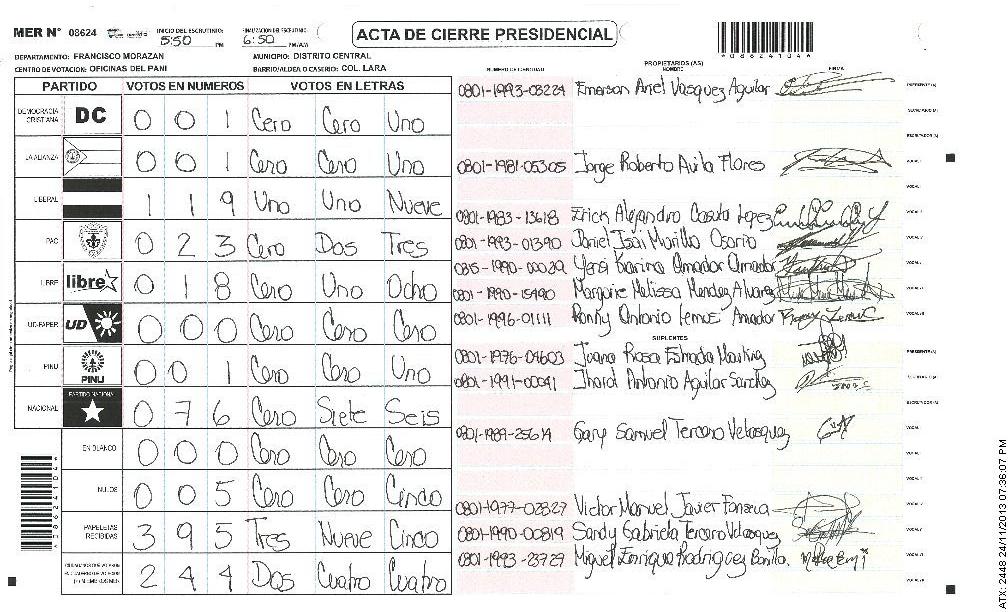 MER N° 08624
INICIO DEL ESCRUTINIO: 5:50 PM
FINALIZACION DEL ESCRUTINIO: 6:50 PM/A.M
ACTA DE CIERRE PRESIDENCIAL
*086241044*
DEPARTAMENTO: FRANCISCO MORAZAN
MUNICIPIO: DISTRITO CENTRAL
CENTRO DE VOTACION: OFICINAS DEL PANI
BARRIO/ALDEA O CASERIO: COL. LARA
PARTIDO VOTOS EN NUMEROS VOTOS EN LETRAS
DEMOCRACIA CRISTIANA DC 0 0 1 Cero Cero Uno
LA ALIANZA 0 0 1 Cero Cero Uno
LIBERAL 1 1 9 Uno Uno Nueve
PAC 0 2 3 Cero Dos Tres
LIBRE libre 0 1 8 Cero Uno Ocho
UD-FAPER UD 0 0 0 Cero Cero Cero
PINU PINU 0 0 1 Cero Cero Uno
NACIONAL PARTIDO NACIONAL 0 7 6 Cero Siete Seis
EN BLANCO 0 0 0 Cero Cero Cero
NULOS 0 0 5 Cero Cero Cinco
PAPELETAS RECIBIDAS 3 9 5 Tres Nueve Cinco
2 4 4 Dos Cuatro Cuatro
NUMERO DE IDENTIDAD PROPIETARIOS (AS) NOMBRE FIRMA
0801-1993-03224 Emerson Ariel Vasquez Aguilar PRESIDENTE (A)
SECRETARIO (A)
ESCRUTADOR (A)
0801-1981-05305 Jorge Roberto Avila Flores VOCAL I
0801-1983-13618 Erick Alejandro Lopez
0801-1993-01390 Daniel Isai Murillo Osorio
1990-00029 Yensi Karina Amador Amador
0801-1990-15490 Margorie Melissa Mendez Alvarez
0801-1996-01111 Ronny Antonio Lemus Amador
SUPLENTES
0801-1976-04603 Juana Rosa Estrada PRESIDENTE (A)
0801-1991-00041 Jharol Antonio Aguilar Sanchez
ESCRUTADOR (A)
0801-1989-25614 Gary Samuel Tercero Velasquez
0801-1977-02827 Victor Manuel Javier Fonseca
0801-1990-00819 Sandy Gabriela Tercero Velasquez
0801-1993-23729 Miguel Enrique Rodriguez Bonilla.
ATX: 2448 24/11/2013 07:36:07 PM